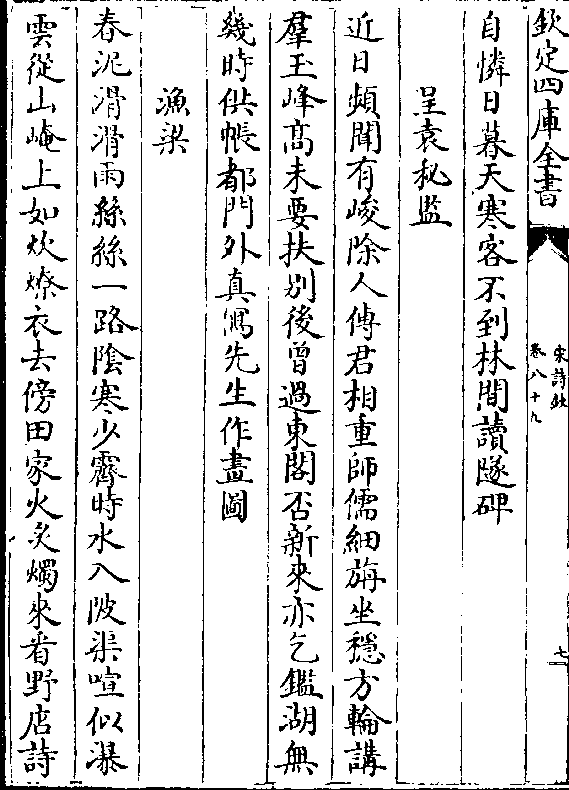 欽定四庫全書
宋詩鈔
卷八十九
七
自憐日暮天寒客不到林間讀隧碑
呈袁秘監
近日頻聞有峻除人傳君相重師儒細旃坐穩方輪講
羣玉峰高未要扶別後曾過東閣否新來亦乞鑑湖無
幾時供帳都門外真寫先生作畫圖
漁梁
春泥滑滑雨絲絲一路陰寒少霽時水入陂渠喧似瀑
雲從山崦上如炊燎衣去傍田家火炙燭來看野店詩